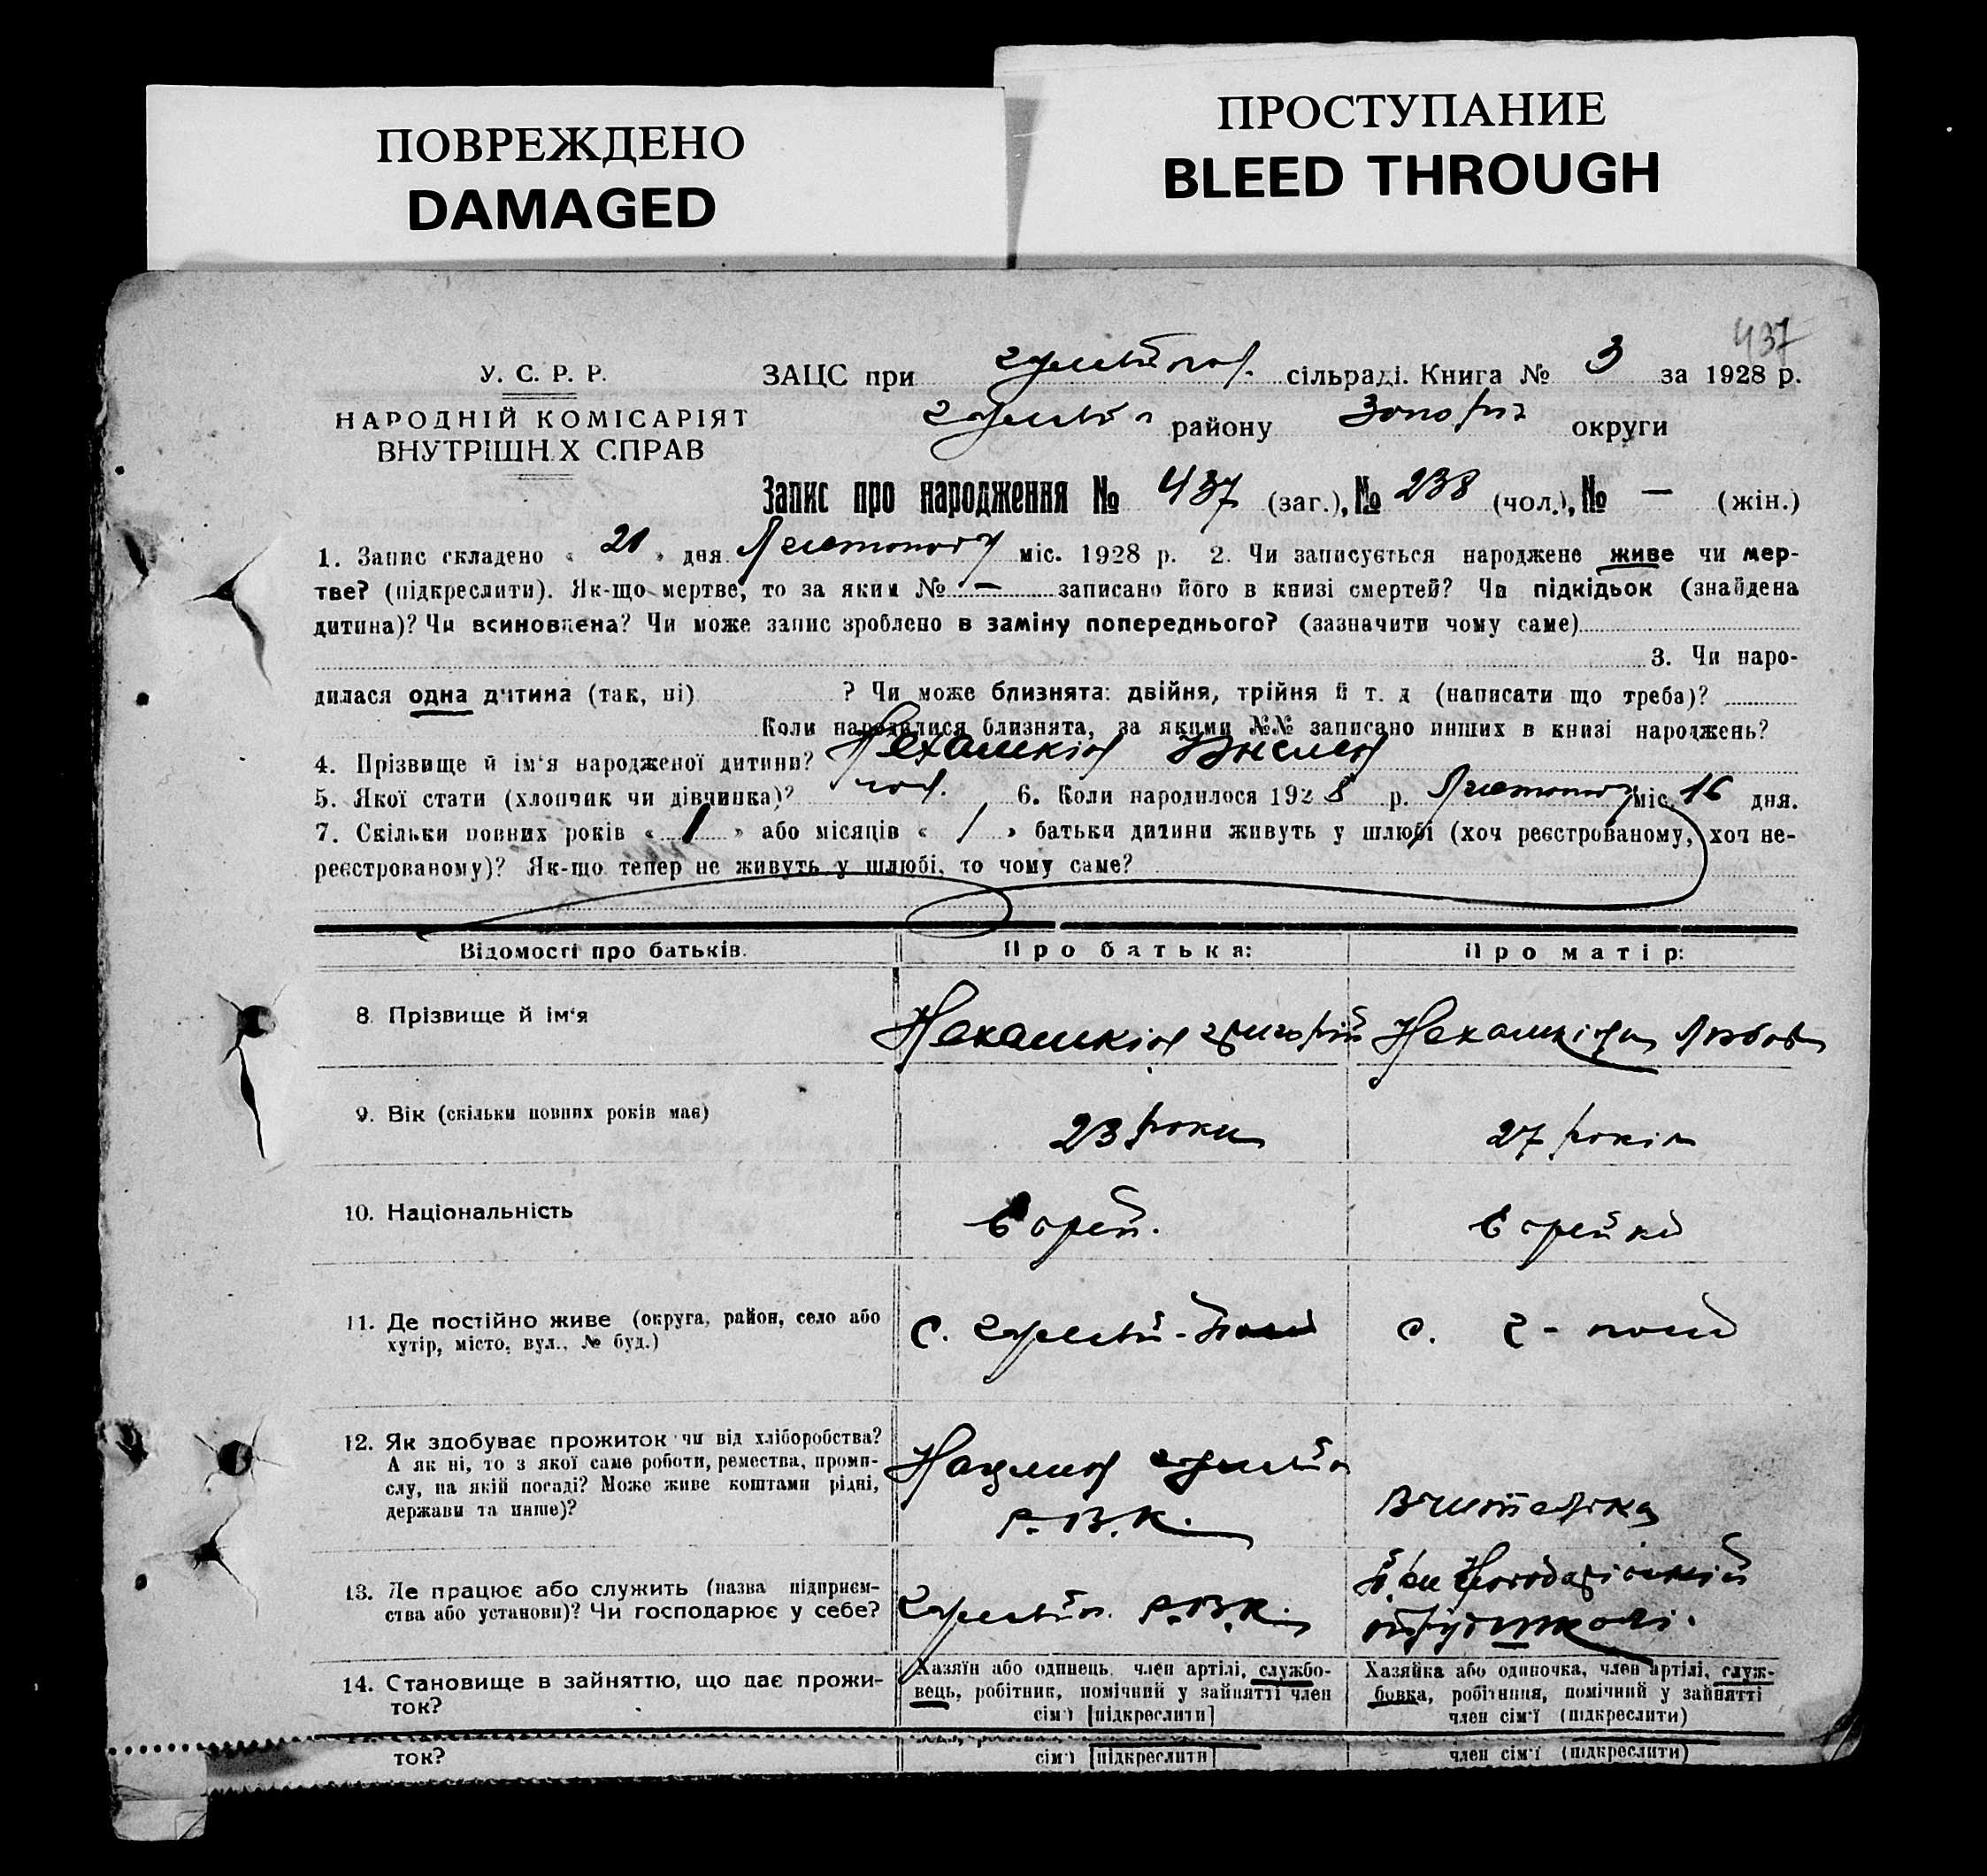 ПОВРЕЖДЕНО
DAMAGED
ПРОСТУПАНИЕ
BLEED THROUGH
437
У. С. Р. Р.
НАРОДНІЙ КОМІСАРІЯТ
ВНУТРІШН.Х СПРАВ
ЗАЦС при сільраді. Книга № 3 за 1928 р.
району округи
Запис про народження № 437 (заг.), № 238 (чол.), № — (жін.)
1. Запис складено « 21 » дня Листопаду міс. 1928 р. 2. Чи записується народжене живе чи мер-
тве? (підкреслити). Як-що мертве, то за яким № — записано його в книзі смертей? Чи підкідьок (знайдена
дитина)? Чи всиновлена? Чи може запис зроблено в заміну попереднього? (зазначити чому саме)
3. Чи наро-
дилася одна дитина (так, ні) ? Чи може близнята: двійня, трійня й т. д (написати що треба)?
Коли народилися близнята, за якими №№ записано инших в книзі народжень?
4. Прізвище й ім'я народженої дитини?
5. Якої стати (хлопчик чи дівчинка)? чол. 6. Коли народилося 1928 р. Листопаду міс. 16 дня.
7. Скільки повних років « 1 » або місяців « / » батьки дитини живуть у шлюбі (хоч реєстрованому, хоч не-
реєстрованому)? Як-що тепер не живуть у шлюбі, то чому саме?
Відомості про батьків. Про батька: Про матір:
8. Прізвище й ім'я Нехамкін Григорій Нехамкіна Любов
9. Вік (скільки повних років має) 23 роки 27 років
10. Національність Єврей. Єврейка
11. Де постійно живе (округа, район, село або
хутір, місто, вул., № буд.)
с. Гуляй-Поле с. Г-поле
12. Як здобуває прожиток чи від хліборобства?
А як ні, то з якої саме роботи, ремества, проми-
слу, на якій посаді? Може живе коштами рідні,
держави та инше)?
Р.В.К.
Вчителька
13. Де працює або служить (назва підприєм-
ства або установи)? Чи господарює у себе?
Гуляйп. Р.В.К.
трудшколі.
14. Становище в зайняттю, що дає прожи-
ток?
Хазяїн або одинець, член артілі, службо-
вець, робітник, помічний у зайнятті член
сім'ї [підкреслити]
Хазяйка або одиночка, член артілі, служ-
бовка, робітниця, помічний у зайнятті
член сім'ї (підкреслити)
ток?
сім'ї [підкреслити]
член сім'ї (підкреслити)